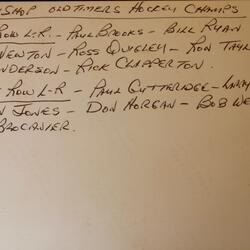 SHOP OLDTIMERS HOCKEY CHAMPS
ROW L-R. - PAUL BROOKS - BILL RYAN
NEWTON - ROSS QUIGLEY - RON TAYL
NDERSON - RICK CLAPPERTON.
ROW L-R - PAUL GUTTERIDGE - LARRY
N JONES - DON HORGAN - BOB WE
BROCANIER.